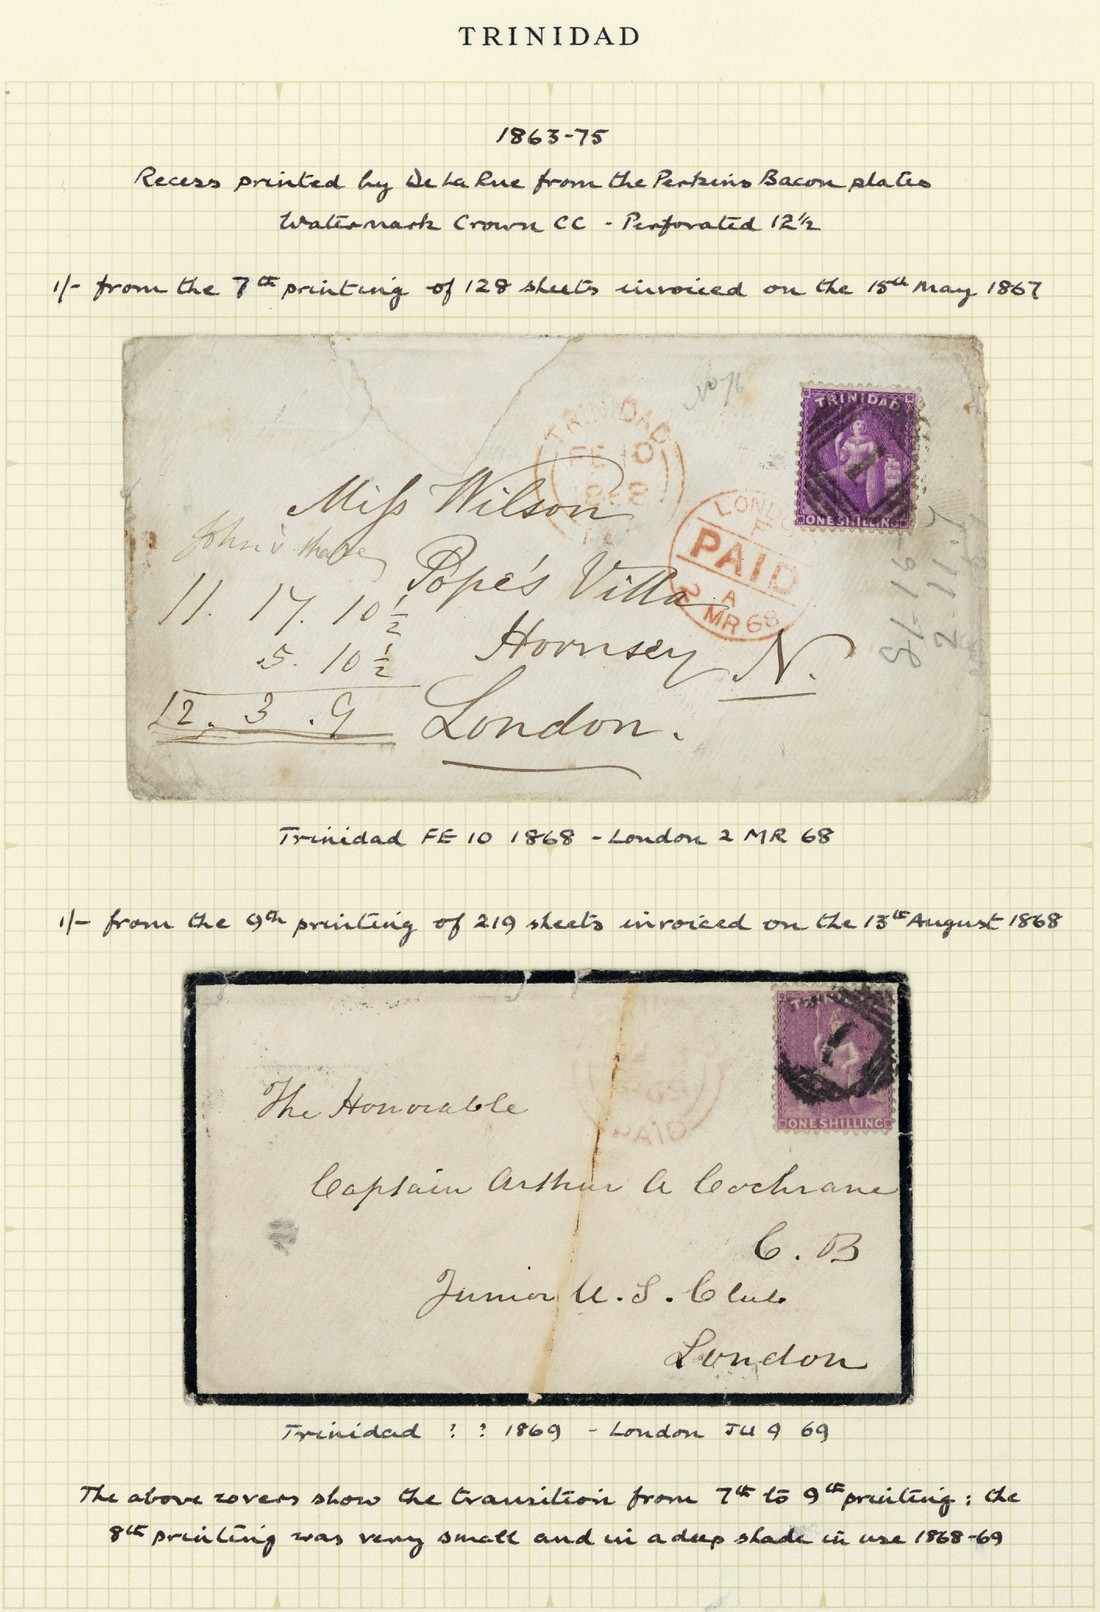 TRINIDAD
1863-75
Recess printed by De La Rue from the Perkins Bacon plates
Watermark Crown CC - Perforated 12½
1/- from the 7th printing of 128 sheets invoiced on the 15th May 1867
No 76
TRINIDAD
FE 10
1868
TRINIDAD
1
ONE SHILLING
LONDON
PAID
2 A
MR 68
Miss Wilson
John's share
Pope's Villa
11. 17. 10½
Hornsey N.
.5. 10½
12. 3. 9
London.
Trinidad FE 10 1868 - London 2 MR 68
1/- from the 9th printing of 219 sheets invoiced on the 13th August 1868
1
ONE SHILLING
PAID
The Honorable
Captain Arthur A Cochrane
C. B
Junior U. S. Club
London
Trinidad ? ? 1869 - London JU 9 69
The above covers show the transition from 7th to 9th printing; the
8th printing was very small and in a deep shade in use 1868-69